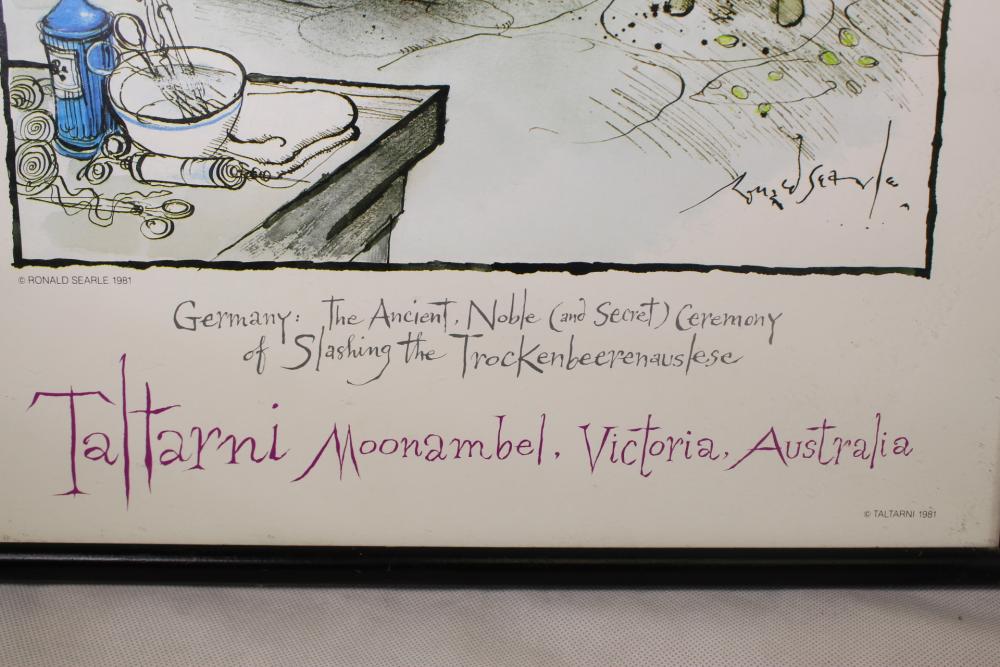 Ronald Searle
© RONALD SEARLE 1981
Germany: The Ancient, Noble (and Secret) Ceremony
of Slashing the Trockenbeerenauslese
Taltarni Moonambel, Victoria, Australia
© TALTARNI 1981